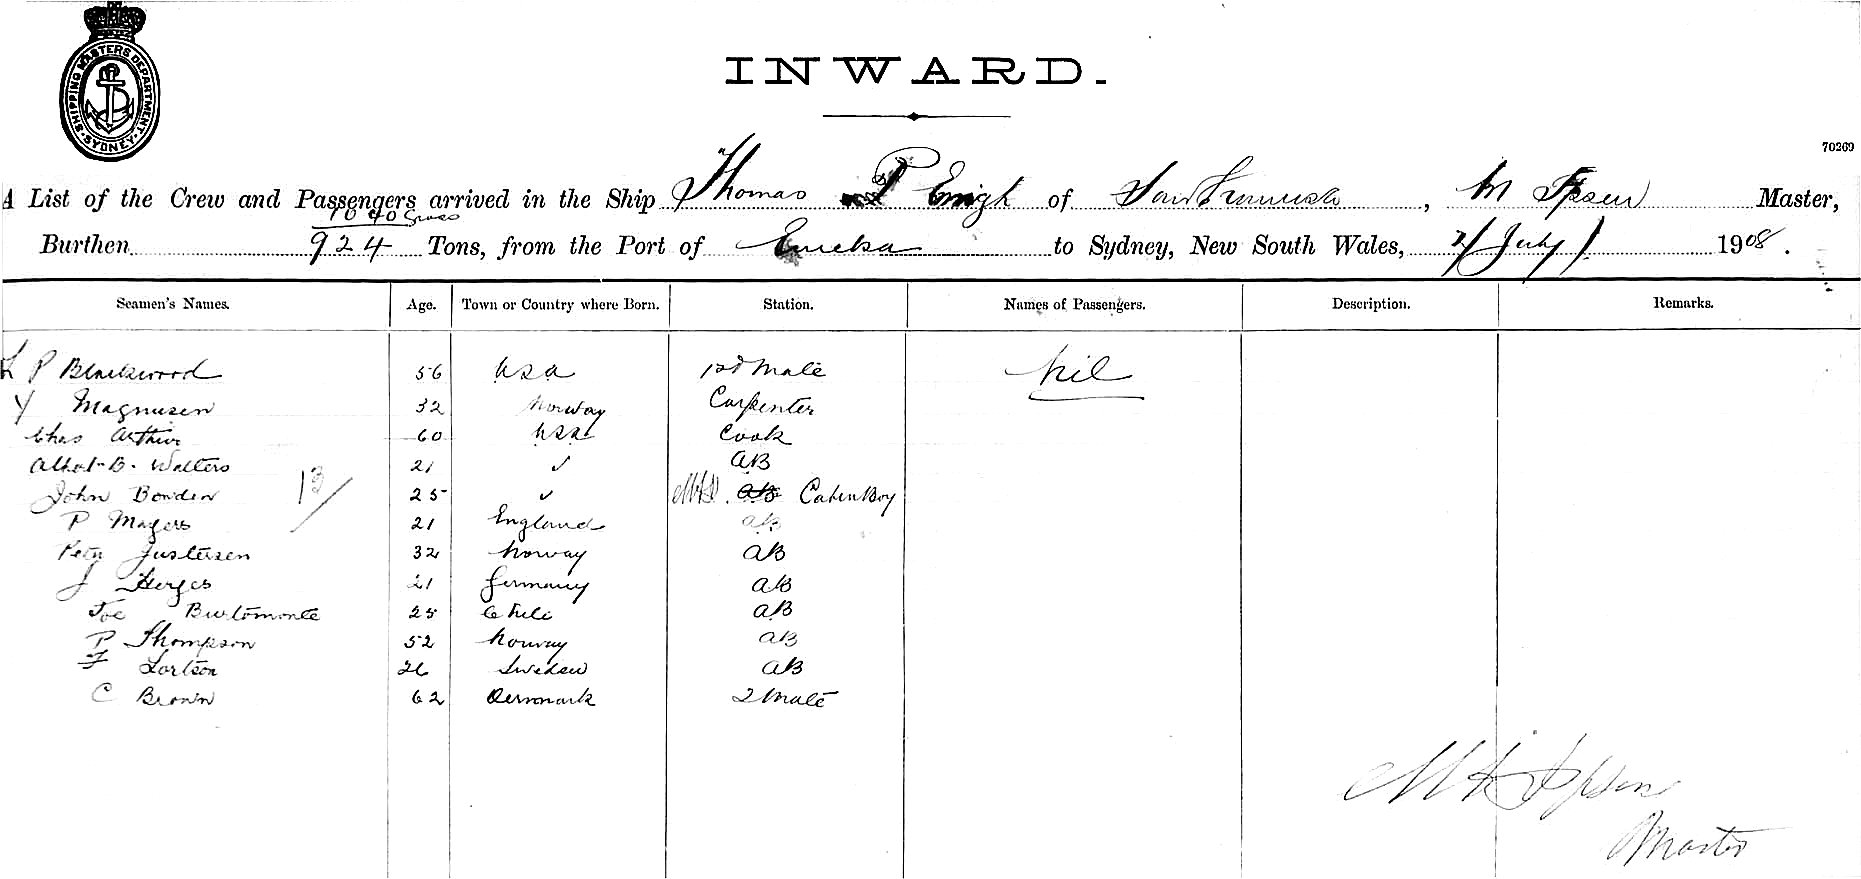 SHIPPING MASTERS DEPARTMENT · SYDNEY ·
INWARD.
70269
A List of the Crew and Passengers arrived in the Ship Thomas P Emigh of San Francisco, M Ipsen Master,
1040 Gross
Burthen 924 Tons, from the Port of Eureka to Sydney, New South Wales, 2/July/ 1908.
Seamen's Names. Age. Town or Country where Born. Station. Names of Passengers. Description. Remarks.
P Blackwood 56 USA 1st Mate Nil
Y Magnusen 32 Norway Carpenter
Chas Arthur 60 USA Cook
Albert B. Walters 21 ✓ AB
John Bowden 13/ 25 ✓ AB Cabin Boy
P Magers 21 England AB
Peter Justersen 32 Norway AB
J Herges 21 Germany AB
Joe Burtomonte 25 Chile AB
P Thompson 52 Norway AB
F Lortson 26 Sweden AB
C Brown 62 Denmark 2 Mate
Ipsen
Master